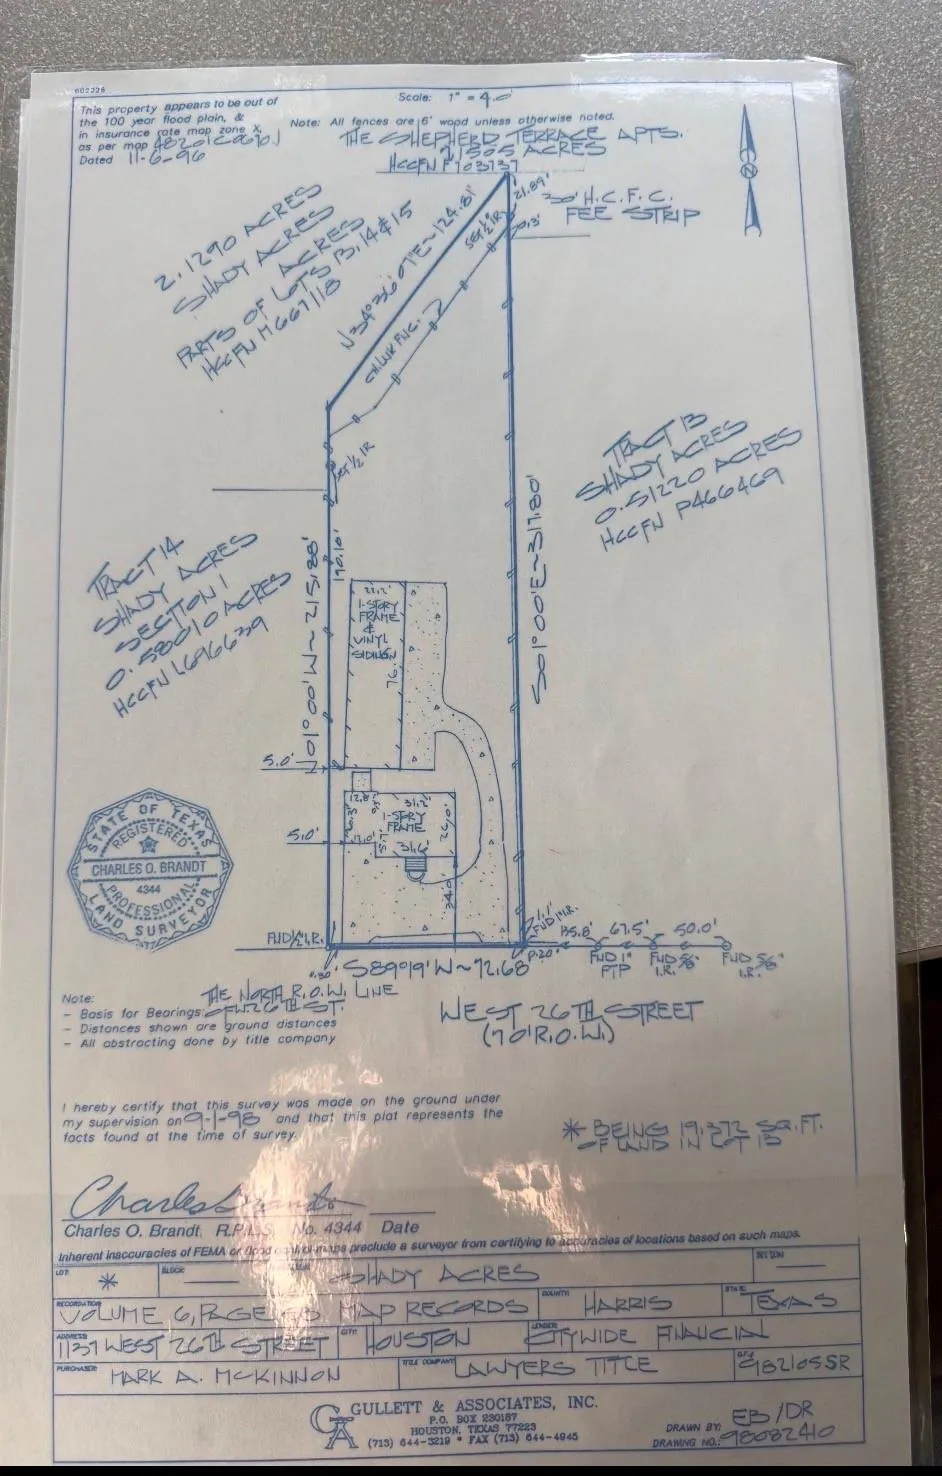 602226
This property appears to be out of
the 100 year flood plain, &
in insurance rate map zone X,
as per map 48201C0670J
Dated 11-6-96
Scale: 1" = 40'
Note: All fences are 6' wood unless otherwise noted.
THE SHEPHERD TERRACE APTS.
2.1505 ACRES
HCCFN F703737
30' H.C.F.C.
FEE STRIP
21.89'
SET ½" I.R.
20.3'
N
2.1290 ACRES
SHADY ACRES
ACRES
PARTS OF LOTS 13, 14 & 15
HCCFN M667118
N34°36'07"E ~ 124.81'
CH. LINK FNC.
SET ½" IR
TRACT 13
SHADY ACRES
0.51220 ACRES
HCCFN P466469
S01°00'E ~ 317.80'
TRACT 14
SHADY ACRES
SECTION 1
0.58010 ACRES
HCCFN L696639
N01°00'W ~ 215.88'
190.10'
22.2'
1-STORY
FRAME
&
VINYL
SIDING
76.
5.0'
12.8'
31.2'
1-STORY
FRAME
26.0'
20.3'
17.0'
5.7'
31.6'
5.0'
34.0
STATE OF TEXAS
REGISTERED
CHARLES O. BRANDT
4344
PROFESSIONAL
LAND SURVEYOR
FND ½" I.R.
0.30'
S89°19'W ~ 72.68'
1.1'
FND 1" I.R.
0.20'
135.8'
67.5'
50.0'
FND 1"
PTP
FND 5/8"
I.R.
FND 5/8"
I.R.
WEST 26TH STREET
(70' R.O.W.)
Note:
THE NORTH R.O.W. LINE
- Basis for Bearings: OF W. 26TH ST.
- Distances shown are ground distances
- All abstracting done by title company
I hereby certify that this survey was made on the ground under
my supervision on 9-1-98 and that this plat represents the
facts found at the time of survey.
* BEING 19,372 SQ. FT.
OF LAND IN LOT 13
Charles O. Brandt
Charles O. Brandt, R.P.L.S. No. 4344 Date
Inherent inaccuracies of FEMA or flood control maps preclude a surveyor from certifying to accuracies of locations based on such maps.
LOT: * BLOCK: SHADY ACRES SECTION:
RECORDATION: VOLUME 6, PAGE MAP RECORDS COUNTY: HARRIS STATE: TEXAS
ADDRESS: 1137 WEST 26TH STREET CITY: HOUSTON LENDER: CITYWIDE FINANCIAL
PURCHASER: MARK A. McKINNON TITLE COMPANY: LAWYERS TITLE G.F.#: 982105SR
GULLETT & ASSOCIATES, INC.
P.O. BOX 230187
HOUSTON, TEXAS 77223
(713) 644-3219 • FAX (713) 644-4945
DRAWN BY: EB/DR
DRAWING NO.: 98082410